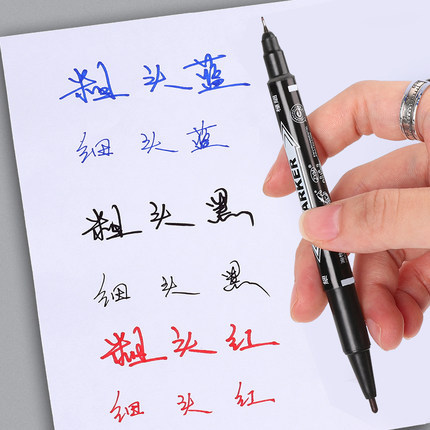 粗头蓝
细头蓝
粗头黑
细头黑
粗头红
细头红
MARKER